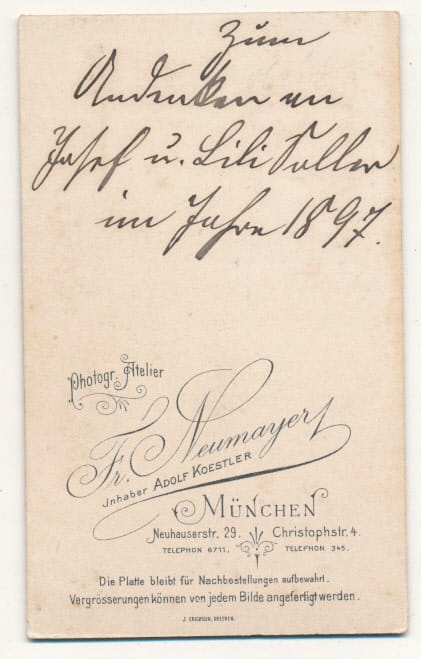 Zum
Andenken an
Josef u. Lili Soller
im Jahre 1897.
Photogr. Atelier
Fr. Neumayer
Jnhaber ADOLF KOESTLER
MÜNCHEN
Neuhauserstr. 29. Christophstr. 4.
TELEPHON 6711. TELEFHON 345.
Die Platte bleibt für Nachbestellungen aufbewahrt.
Vergrösserungen können von jedem Bilde angefertigt werden.